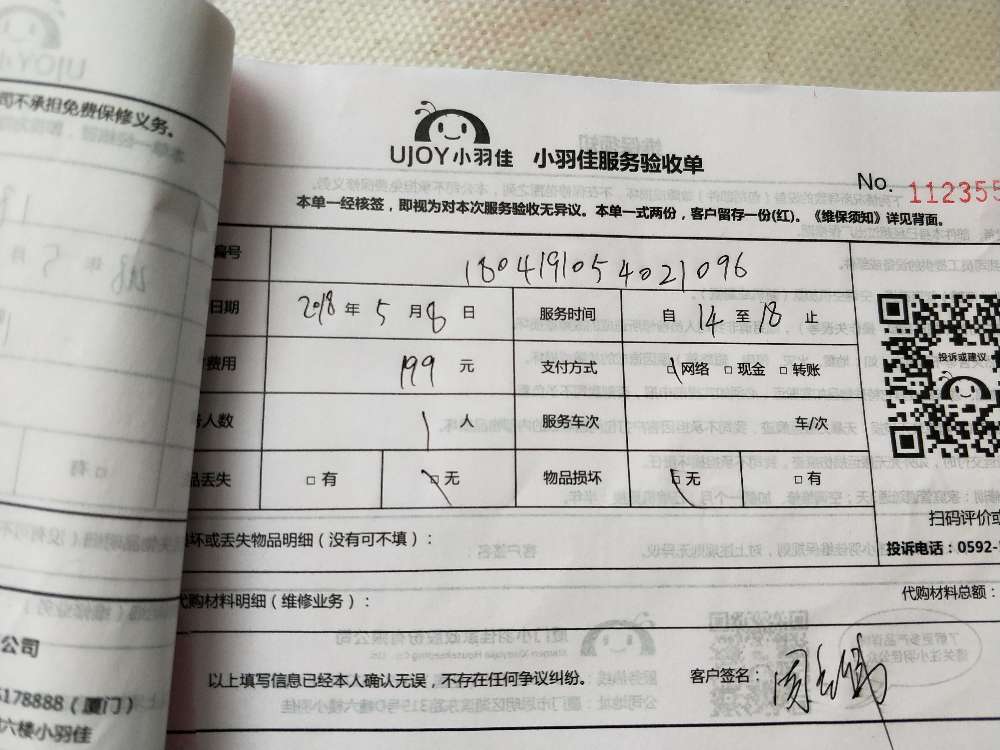 司不承担免费保修义务。
UJOY小羽佳 小羽佳服务验收单
No. 112355
本单一经核签，即视为对本次服务验收无异议。本单一式两份，客户留存一份(红)。《维保须知》详见背面。
编号 1804191054021096
日期 2018 年 5 月 8 日 服务时间 自 14 至 18 止
费用 199 元 支付方式 □网络 □现金 □转账
人数 1 人 服务车次 车/次
品丢失 □有 □无 物品损坏 □无 □有
投诉或建议
扫码评价或
投诉电话：0592-
坏或丢失物品明细（没有可不填）：
代购材料明细（维修业务）： 代购材料总额：
以上填写信息已经本人确认无误，不存在任何争议纠纷。 客户签名：
公司
5178888（厦门）
六楼小羽佳